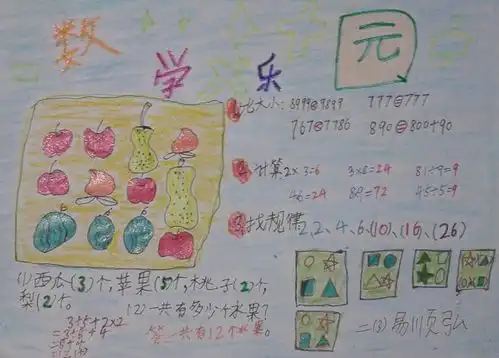 数学乐元
1、比大小：8999<9899 777=777
767<7786 890=800+90
2、计算 2×3=6 3×8=24 81÷9=9
4×6=24 8×9=72 45÷5=9
3、找规律 2、2、4、6、(10)、(16)、(26)
(1)西瓜(3)个，苹果(5)个，桃子(2)个，
梨(2)个。
(2)一共有多少个水果？
3+5+2×2
=3+5+4
=8+4
答：一共有12个水果。